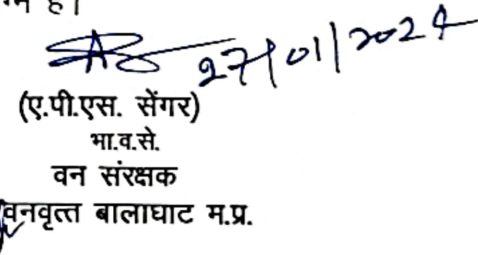 है।
27/01/2024
(ए.पी.एस. सेंगर)
भा.व.से.
वन संरक्षक
वनवृत्त बालाघाट म.प्र.